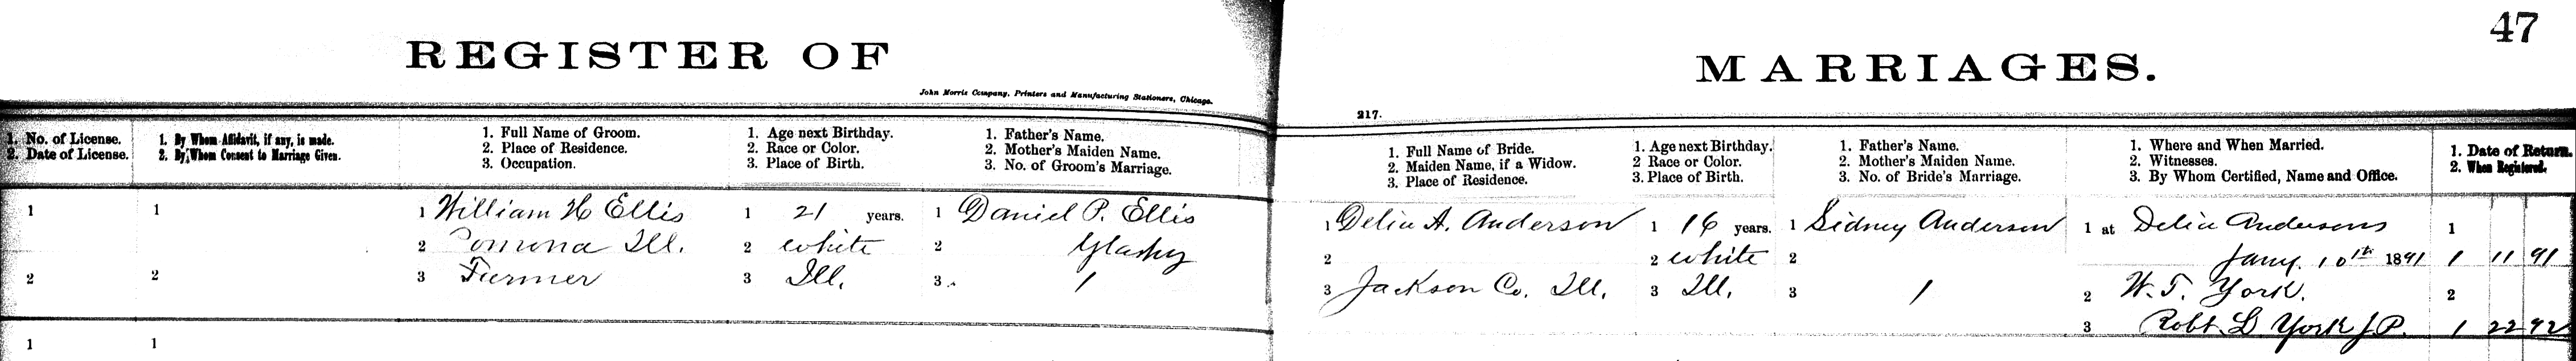 47
REGISTER OF MARRIAGES.
John Morris Company, Printers and Manufacturing Stationers, Chicago.
217.
1. No. of License.
2. Date of License.
1. By Whom Affidavit, if any, is made.
2. By Whom Consent to Marriage Given.
1. Full Name of Groom.
2. Place of Residence.
3. Occupation.
1. Age next Birthday.
2. Race or Color.
3. Place of Birth.
1. Father's Name.
2. Mother's Maiden Name.
3. No. of Groom's Marriage.
1. Full Name of Bride.
2. Maiden Name, if a Widow.
3. Place of Residence.
1. Age next Birthday.
2 Race or Color.
3. Place of Birth.
1. Father's Name.
2. Mother's Maiden Name.
3. No. of Bride's Marriage.
1. Where and When Married.
2. Witnesses.
3. By Whom Certified, Name and Office.
1. Date of Return.
2. When Registered.
1
2
1
2
1 William H Ellis
2 Pomona Ill.
3 Farmer
1 21 years.
2 white
3 Ill.
1 Daniel P. Ellis
2 Glashy
3. 1
1 Delia A. Anderson
2
3 Jackson Co. Ill.
1 16 years.
2 white
3 Ill.
1 Sidney Anderson
2
3 1
1 at Delia Andersons
Jany. 10th 1891
2 W. T. York.
3 Robt. D York J.P.
1
1 11 91
2
1 22 92
1
1